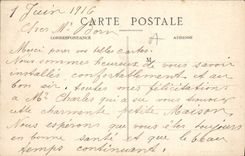 1 Juin 1916
CARTE POSTALE
Cher Mr
CORRESPONDANCE
ADRESSE
Merci pour vos belles cartes.
Nous sommes heureux de vous savoir
installés confortablement et au
bon air. toutes mes félicitations
à Mr Charles qui a ou vous trouver
charmante petite Maison
Nous espérons que vous êtes toujours
en bonne santé et que le beau
temps continuera.